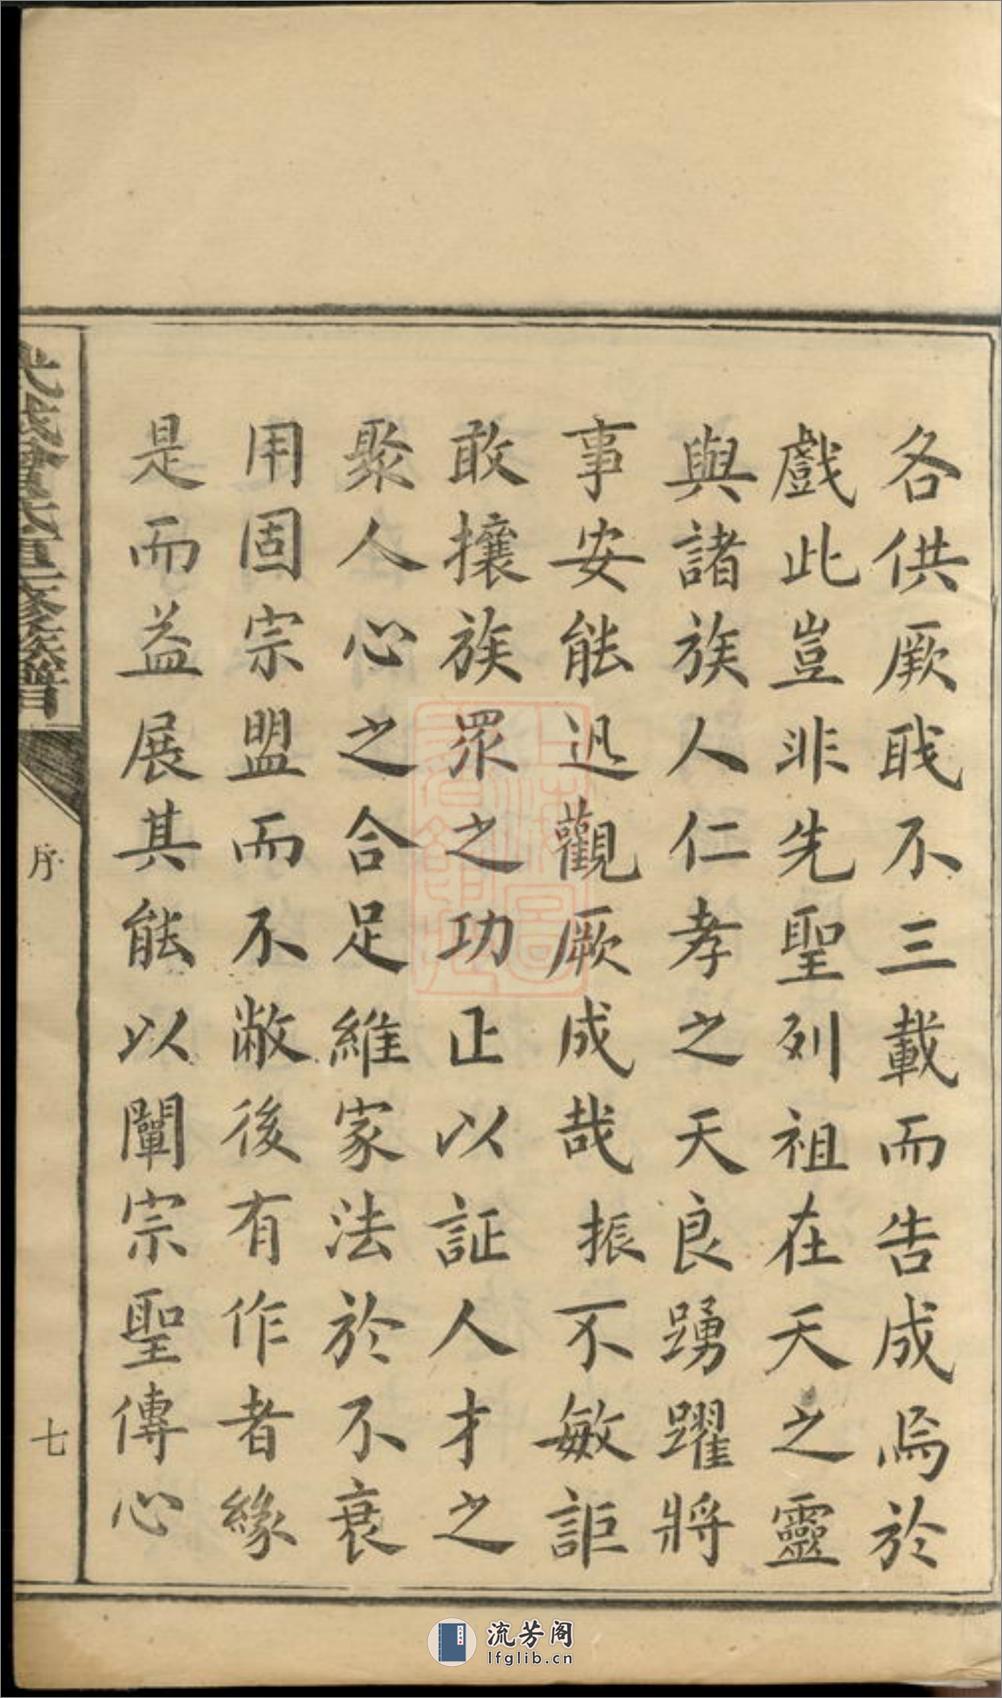 各供厥職不三載而告成焉於
戲此豈非先聖列祖在天之靈
與諸族人仁孝之天良踴躍將
事安能迅觀厥成哉振不敏詎
敢攘族眾之功止以証人才之
聚人心之合足維家法於不衰
用固宗盟而不敝後有作者緣
是而益展其能以闡宗聖傳心
序
七
流芳阁
lfglib.cn